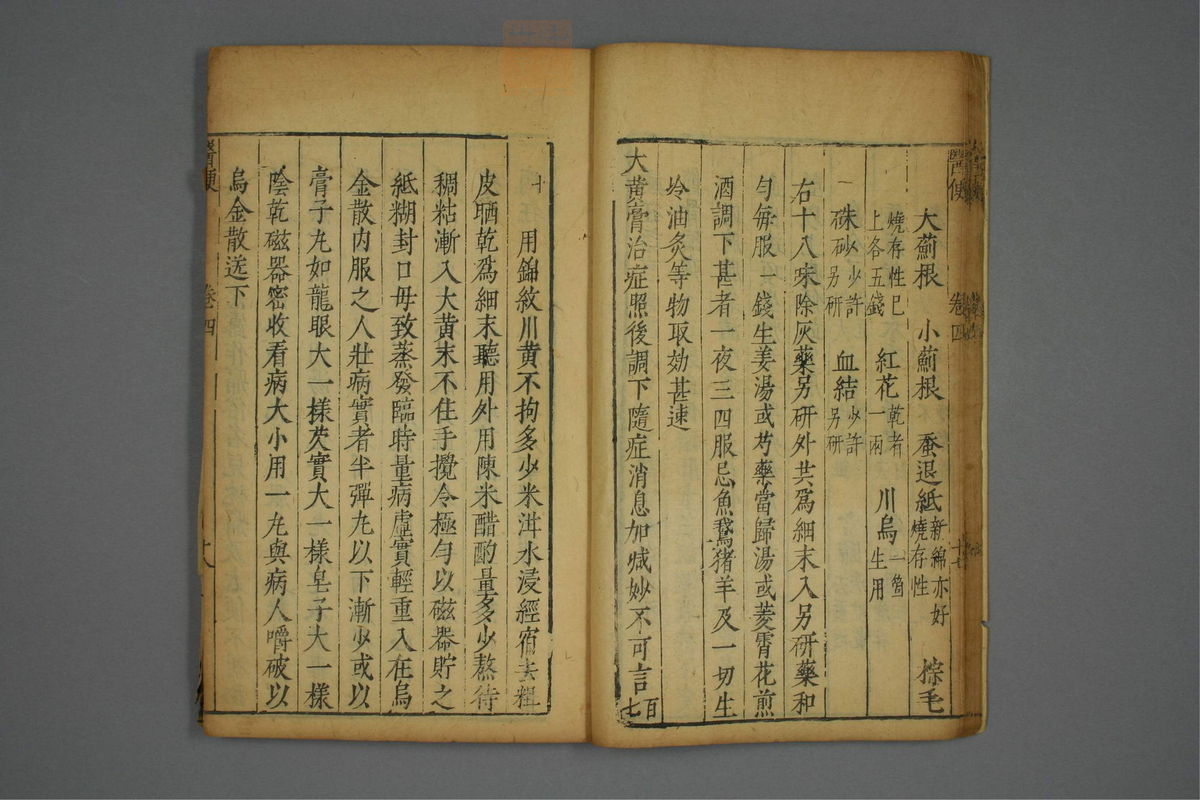 醫便
卷四
十七
大薊根 小薊根 蚕退紙新綿亦好燒存性 棕毛
燒存性已上各五錢 紅花乾者一兩 川烏一箇生用
硃砂少許另研 血結少許另研
右十八味除灰藥另研外共爲細末入另研藥和
勻每服一錢生姜湯或芍藥當歸湯或菱霄花煎
酒調下甚者一夜三四服忌魚鵞猪羊及一切生
冷油灸等物取効甚速
大黃膏治症照後調下隨症消息加减妙不可言
百七
十
用錦紋川黃不拘多少米泔水浸經宿去粗
皮晒乾爲細末聽用外用陳米醋酌量多少熬待
稠粘漸入大黃末不住手攪令極勻以磁器貯之
紙糊封口毋致蒸發臨時量病虛實輕重入在烏
金散内服之人壯病實者半彈丸以下漸少或以
膏子丸如龍眼大一樣芡實大一樣皂子大一樣
陰乾磁器密收看病大小用一丸與病人嚼破以
烏金散送下
醫便
卷四
十八